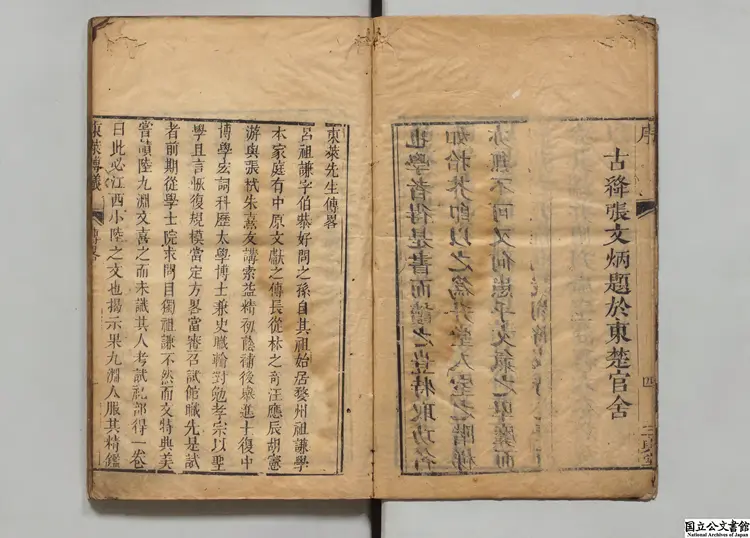 序
古絳張文炳題於東楚官舍
四
東萊先生傳畧
呂祖謙字伯恭好問之孫自其祖始居婺州祖謙學
本家庭有中原文獻之傳長從林之奇汪應辰胡憲
游與張栻朱熹友講索益精初蔭補後舉進士復中
博學宏詞科歷太學博士兼史職輪對勉孝宗以聖
學且言恢復規模當定方畧當審召試館職先是試
者前期從學士院求問目獨祖謙不然而文特典美
嘗讀陸九淵文喜之而未識其人考試礼部得一卷
曰此必江西小陸之文也揭示果九淵人服其精鑑
東萊博議
傳畧
国立公文書館
National Archives of Japan